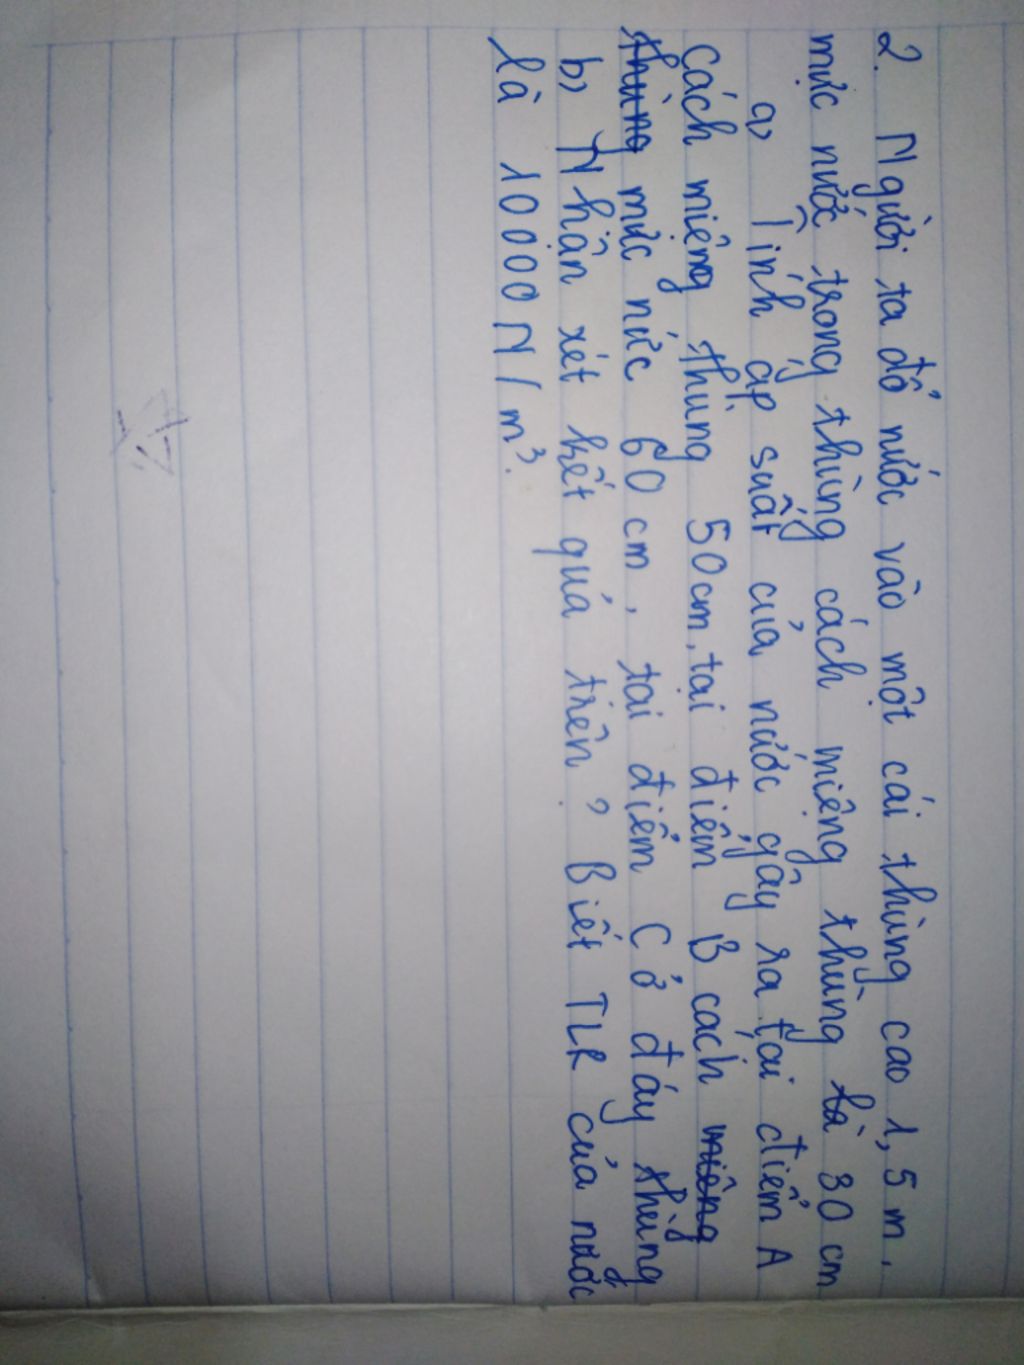 2. Người ta đổ nước vào một cái thùng cao 1,5 m.
mực nước trong thùng cách miệng thùng là 30 cm
a, Tính áp suất của nước gây ra tại điểm A
Cách miệng thùng 50cm, tại điểm B cách miêng
thùng mức nức 60 cm, tai điểm C ở đáy thùng
b, Nhân xét kết quả trên? Biết TLR của nước
là 10 000 N/m³.